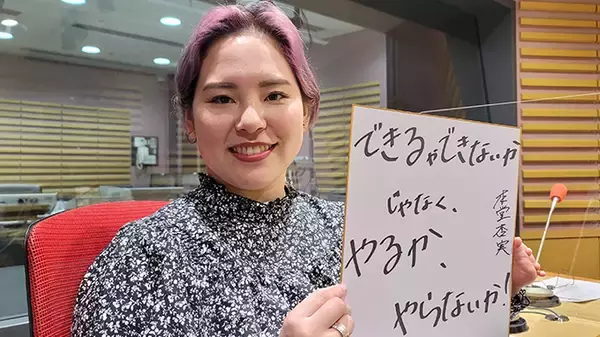 できるかできないか
じゃなく、
やるか、
やらないか!